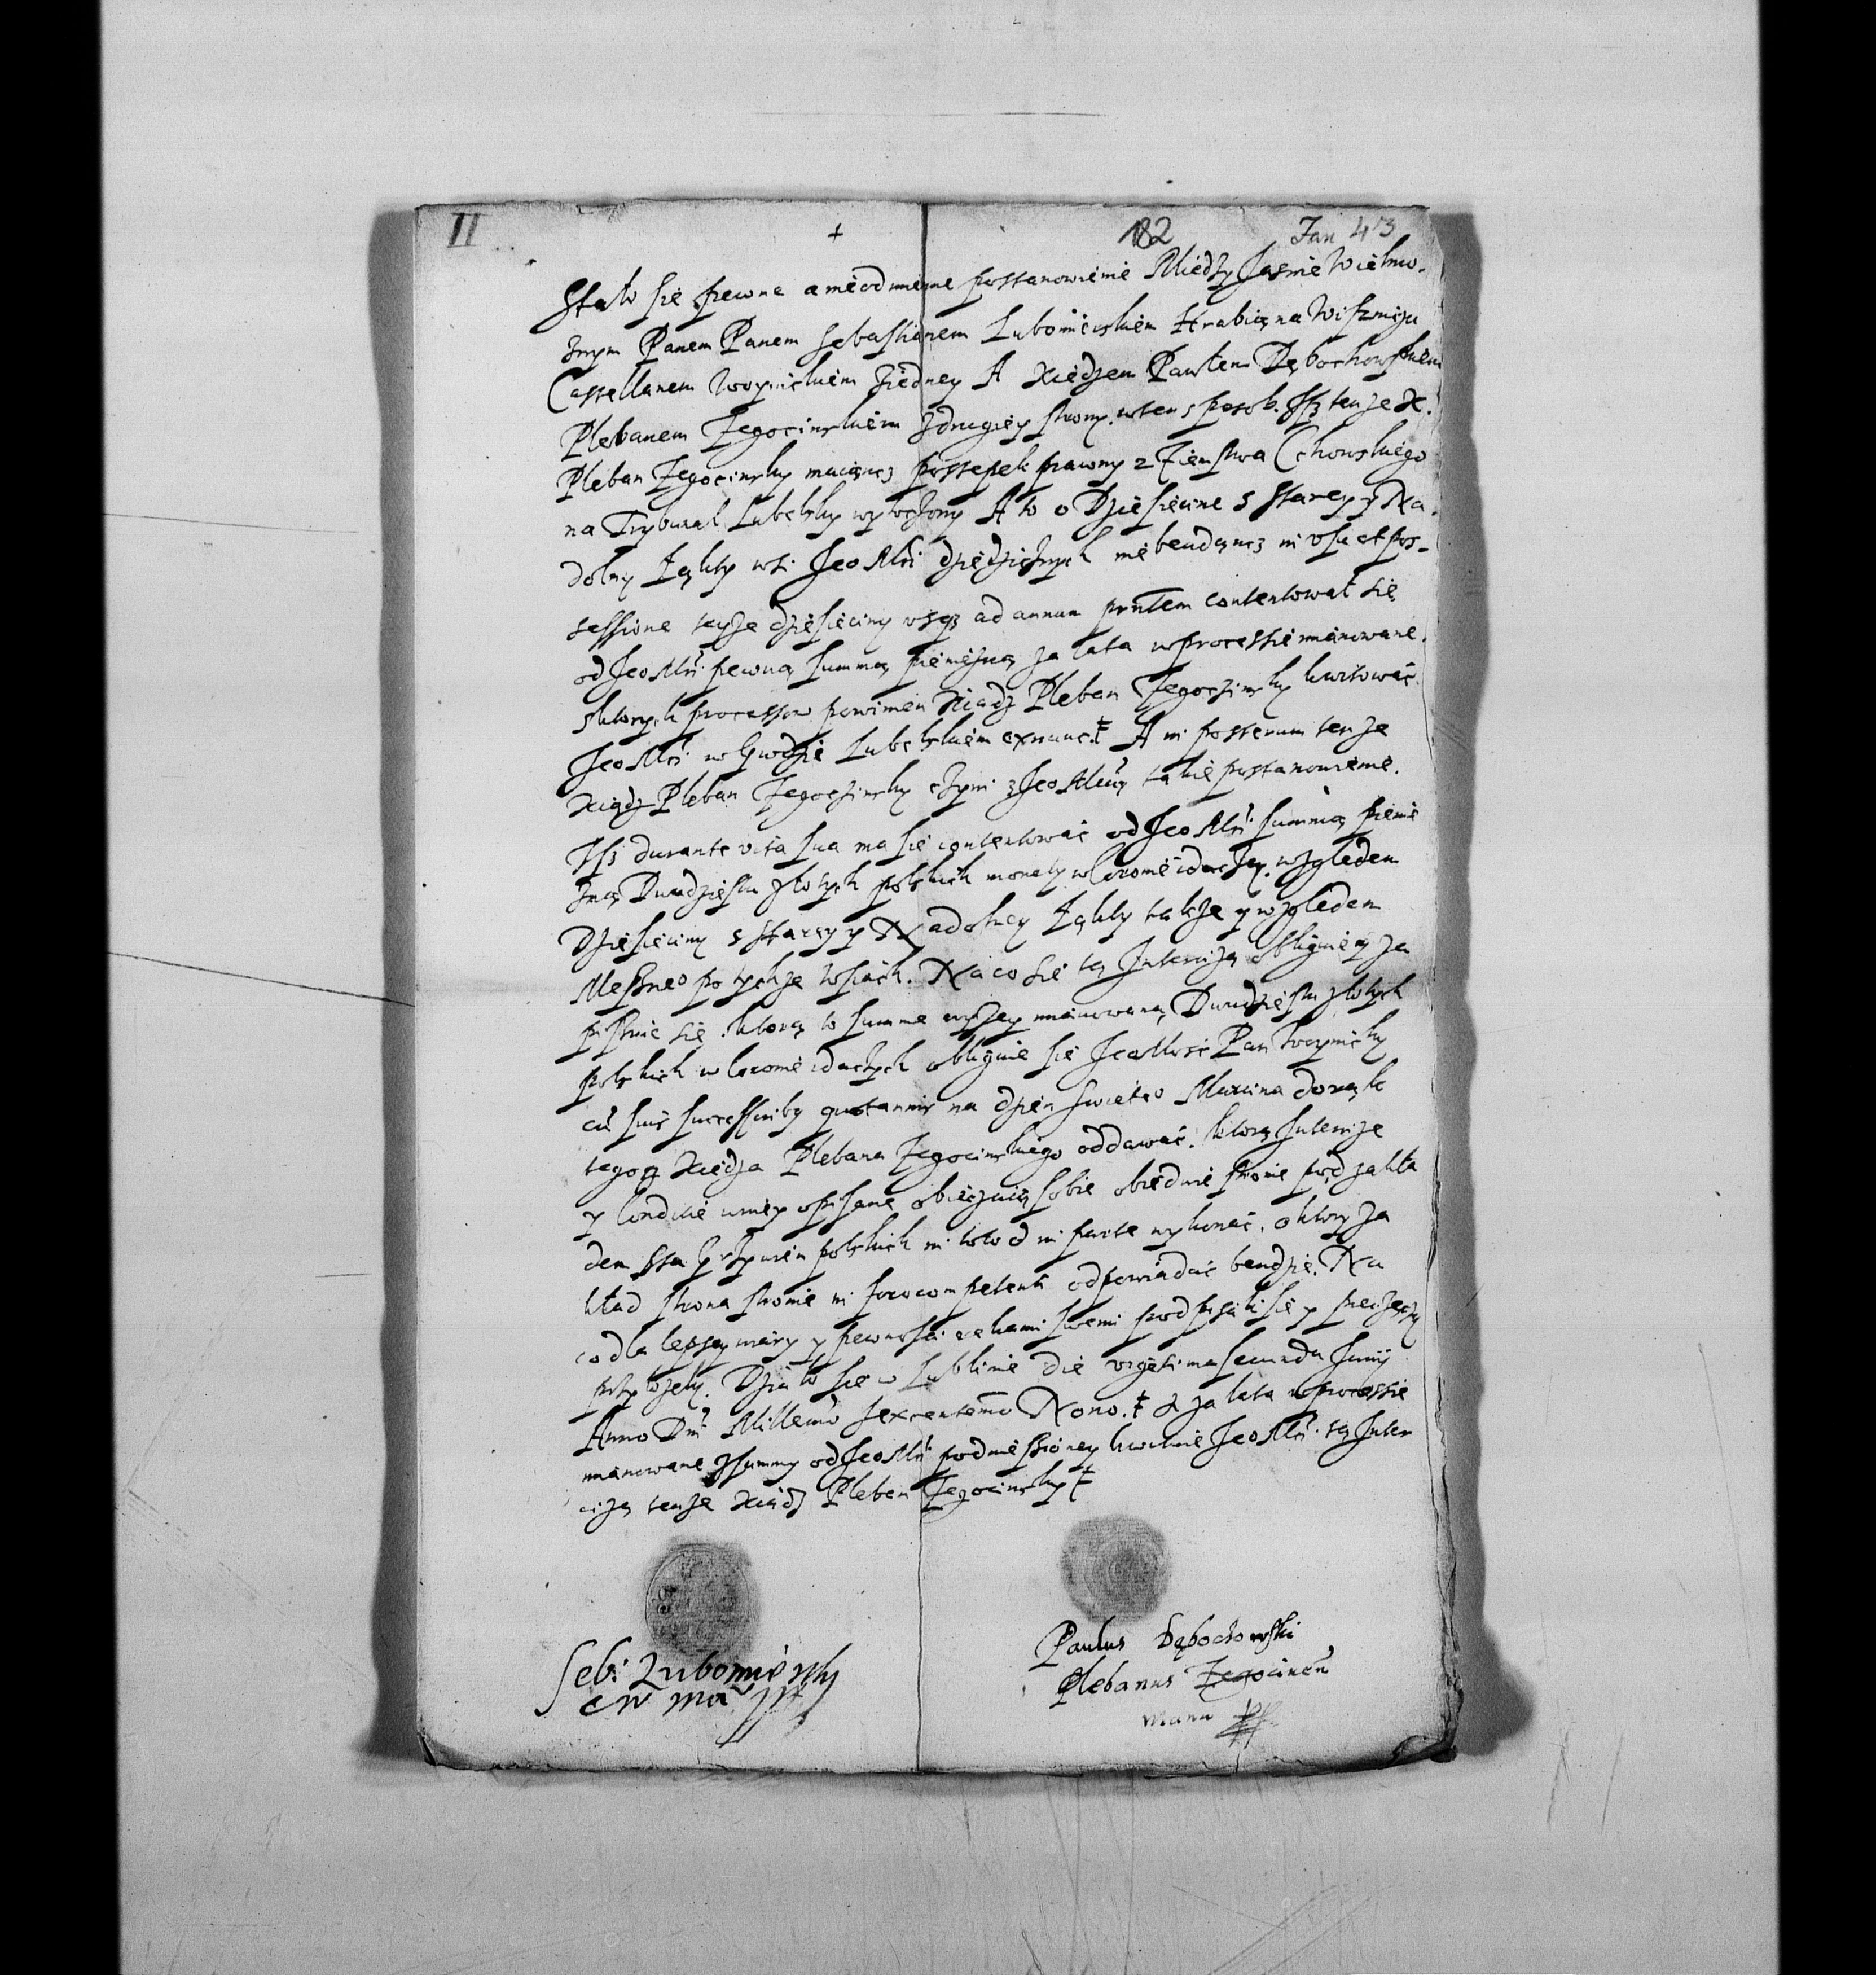 II + 182 Jan 43
Stało się pewne a nieodmienne postanowienie Między Jasnie Wielmo-
znym Panem Panem Sebastianem Lubomirskiem Hrabią na Wiszniczu
Castellanem Woynickiem z iedney A Xiedzem Pawłem Dębochowskiem
Plebanem Zegocinskiem z drugiey strony. wten sposob. Isz tenze X.
Pleban Zegocinsky maiącz postepek prawny z Ziemstwa Cchowskiego
na Trybunal Lubelsky wytoczony A to o Dziesiecine s Starey y Na
dolny Łąkty wsi Jeo Mśći dziedzicznych nie bendącz in usu et pos-
sessione teyze dziesieciny usqz ad annum prntem contentował się
od Jeo Mśći pewną summą pieniezną za lata w processie mianowane.
s ktorych processow powinien Xiadz Pleban Zegoczinsky kwitować
Jeo Mśći w Grodzie Lubelskiem ex nunc. ‡ A in posterum tenze
Xiądz Pleban Zegoczinsky czyni z Jeo Mśćią takie postanowienie.
Isz durante vita sua ma sie contentować od Jeo Mśći summą pienie
zną Dwudziestu złotych polskich monety w Coronie idączey. względem
Dziesieciny s Starey y Nadolney Łąkty takze y względem
Meszneo po tychze wsiach. Na co sie tą Intercizą obliguie y za
pisuie się. ktorą to summe wyzey mianowaną Dwudziestu złotych
polskich w Coronie idących obliguie się Jeo Mość Pan Woynicky
cū suis successoribq quotannis na dzien Swieteo Marcina do rąk
tegoz Xiedza Plebana Zegocinskiego oddawać. ktorą Intercize
y Conditie w niey opisane obieczuią sobie obiedwie stronie pod zakła
dem sta grzywien polskich in toto et in parte wykonać, o ktory za
kład strona stronie in foro competenti odpowiadać bendzie. Na
co dla lepszey wiary y pewnosci rekami swemi podpisali sie y pieczęczy
przylozely. Działo sie w Lublinie die vigesima secunda Junij
Anno Dni Millemo sexcentemo Nono. ‡ za lata w processie
mianowane z summy od Jeo Mśći podniesioney kwituie Jeo Mśći tą Inter
cizą tenze Xiądz Pleban Zegocinsky ‡
Seb: Lubomirsky
CW mā
Paulus Dębochowski
Plebanus Zegocineñ
manu